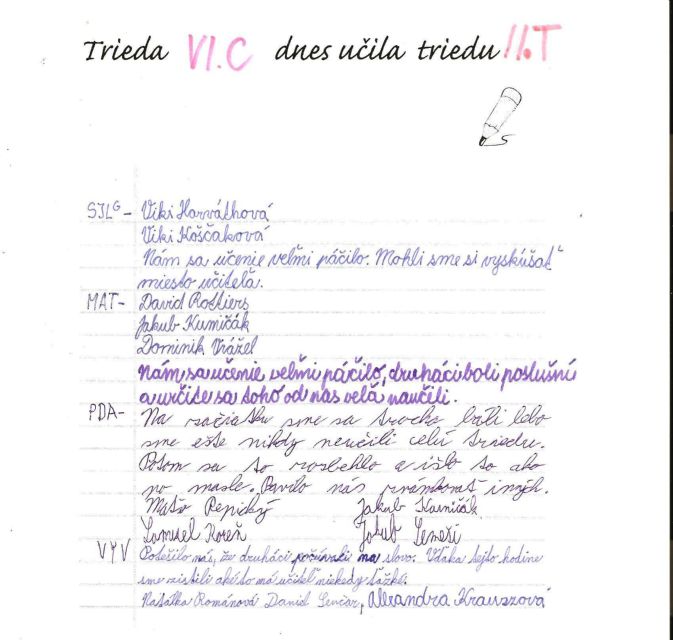 Trieda VI.C dnes učila triedu II.T
SJLG - Viki Horváthová
Viki Koščaková
Nám sa učenie veľmi páčilo. Mohli sme si vyskúšať
miesto učiteľa.
MAT- David Rottiers
Jakub Kumičák
Dominik Vrážel
Nám sa učenie veľmi páčilo, druháci boli poslušní
a určite sa toho od nás veľa naučili.
PDA- Na začiatku sme sa trocha báli lebo
sme ešte nikdy neučili celú triedu.
Potom sa to rozbehlo a išlo to ako
po masle. Bavilo nás zvámborať iných.
Maťo Repický Jakub Kumičák
Samuel Koreň Jakub Semeši
VYV Potešilo nás, že druháci počúvali na slovo. Vďaka tejto hodine
sme zistili aké to má učiteľ niekedy ťažké.
Natálka Románová Daniel Senčár, Alexandra Krauszová